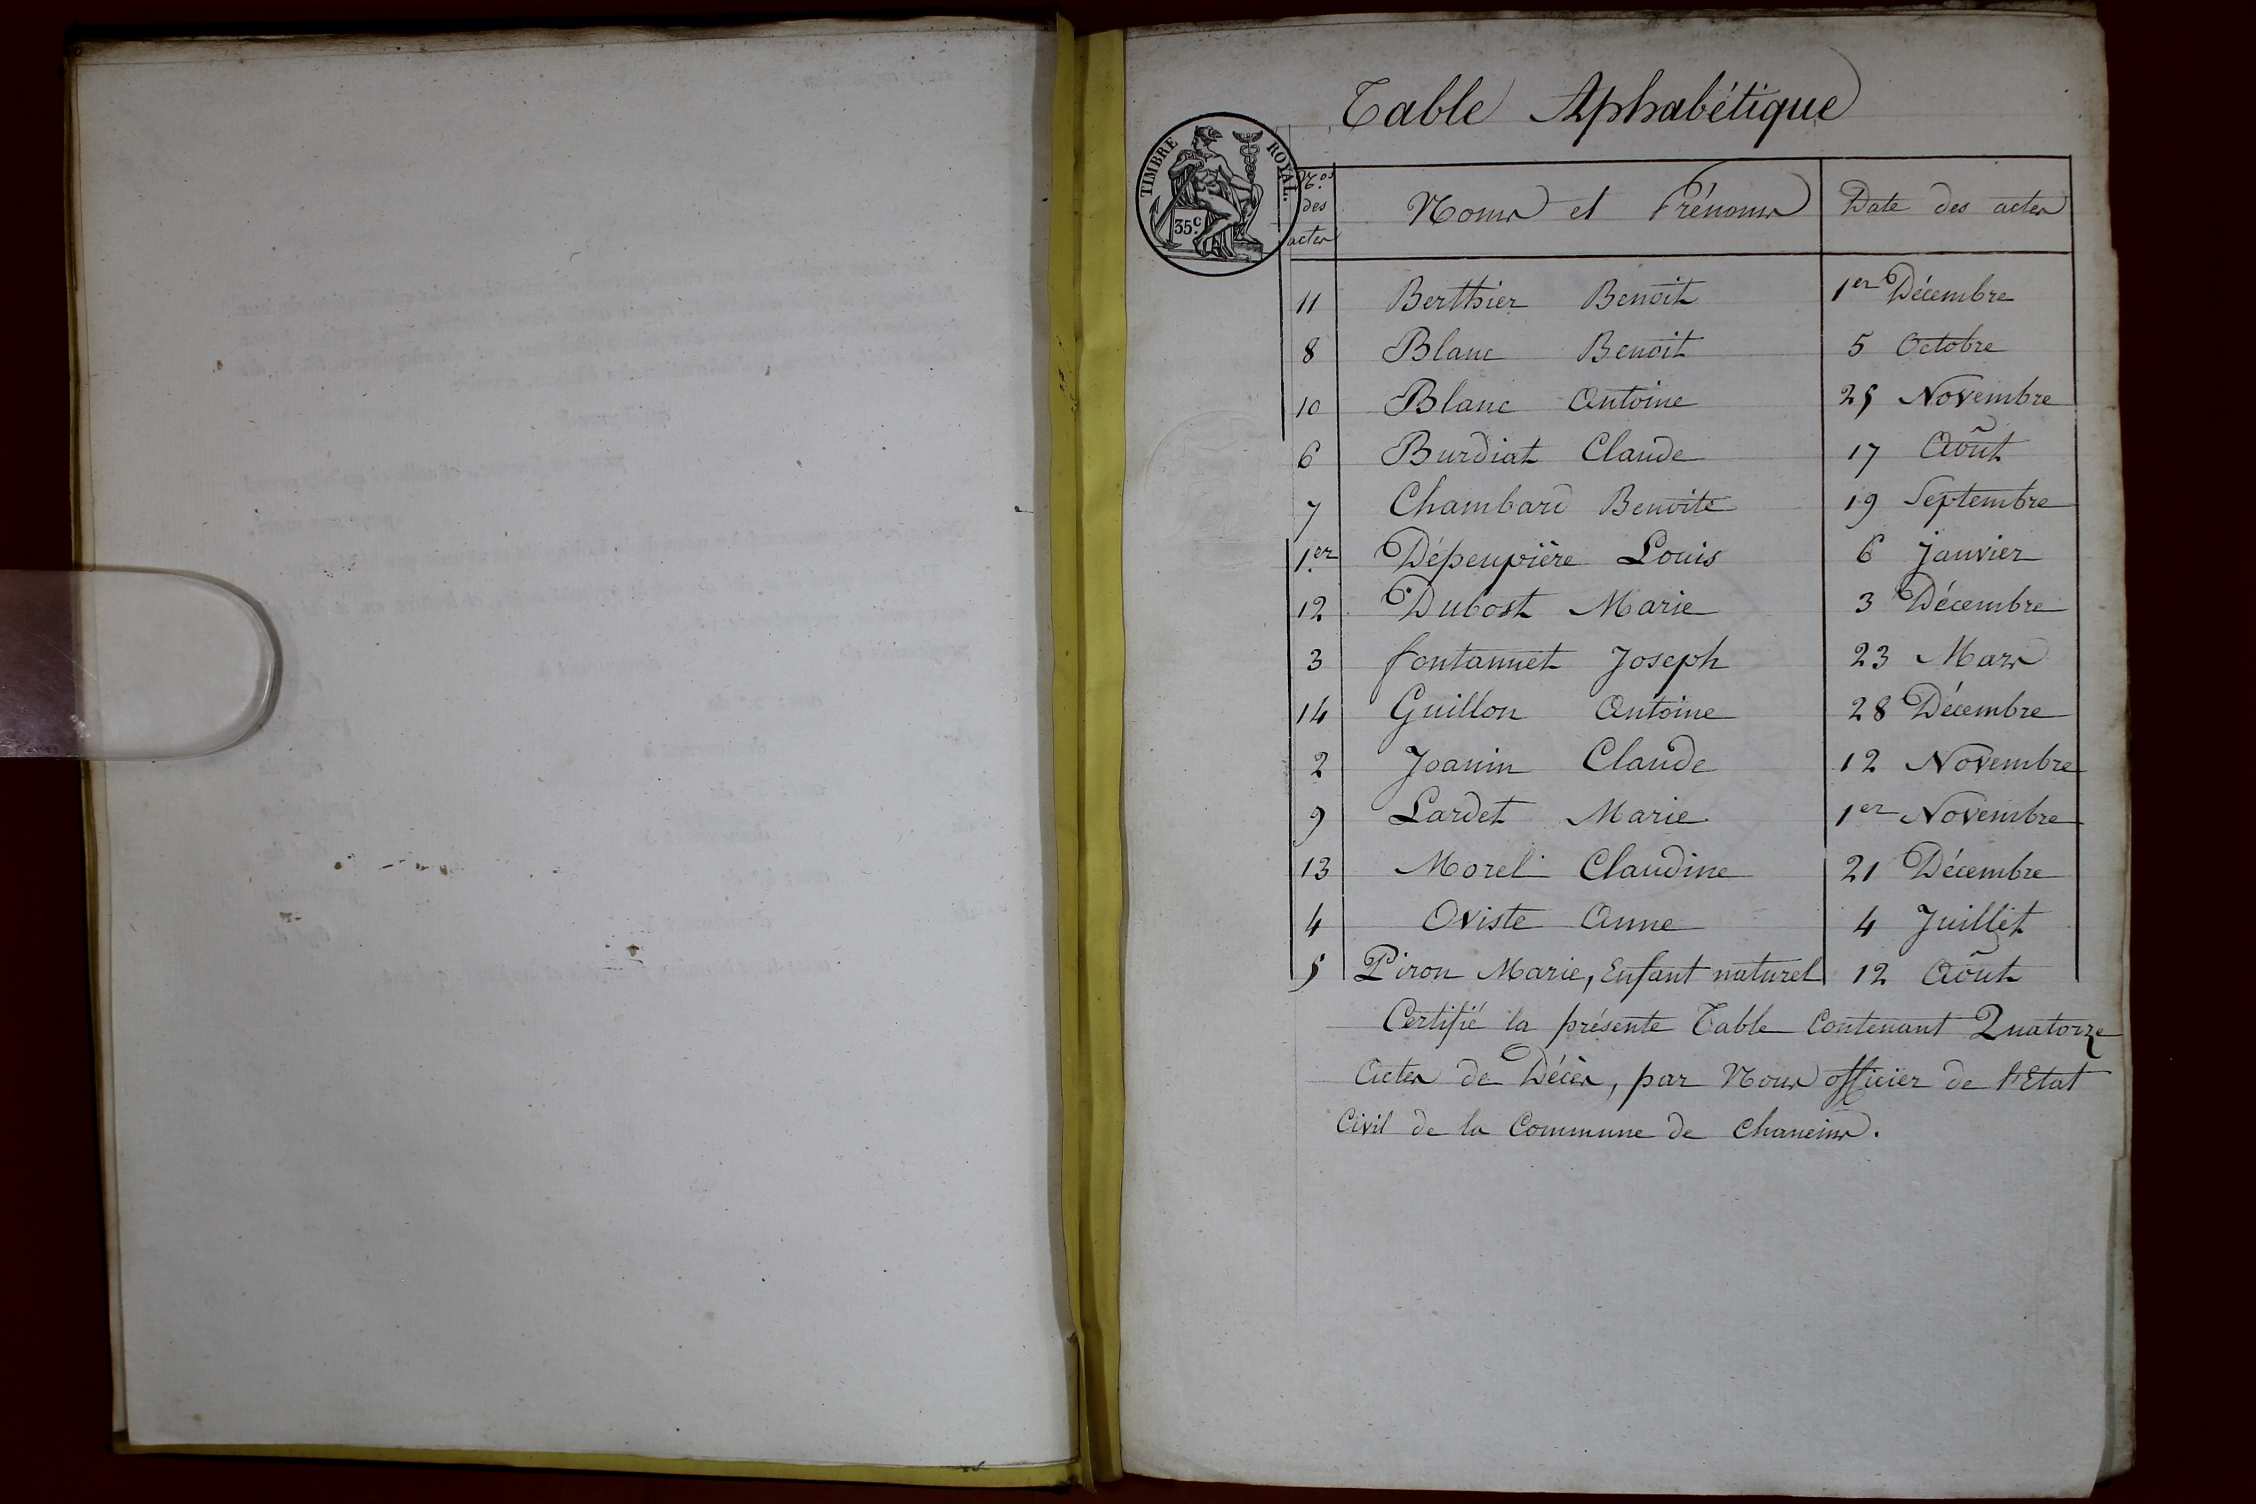 Table Aphabétique
TIMBRE ROYAL.
35 c.
N.os des actes Noms et Prénoms Date des actes
11 Berthier Benoit 1er Décembre
8 Blanc Benoit 5 Octobre
10 Blanc Antoine 25 Novembre
6 Burdiat Claude 17 Août
7 Chambard Benoite 19 Septembre
1.er Dépeupière Louis 6 Janvier
12 Dubost Marie 3 Décembre
3 fontannet Joseph 23 Mars
14 Guillon Antoine 28 Décembre
2 Joanin Claude 12 Novembre
9 Lardet Marie 1er Novembre
13 Morel Claudine 21 Décembre
4 Oviste Anne 4 Juillet
5 Piron Marie, Enfant naturel 12 Août
Certifié la présente Table Contenant Quatorze
Actes de Décès, par Nous officier de l'Etat
Civil de la Commune de Chaneins.